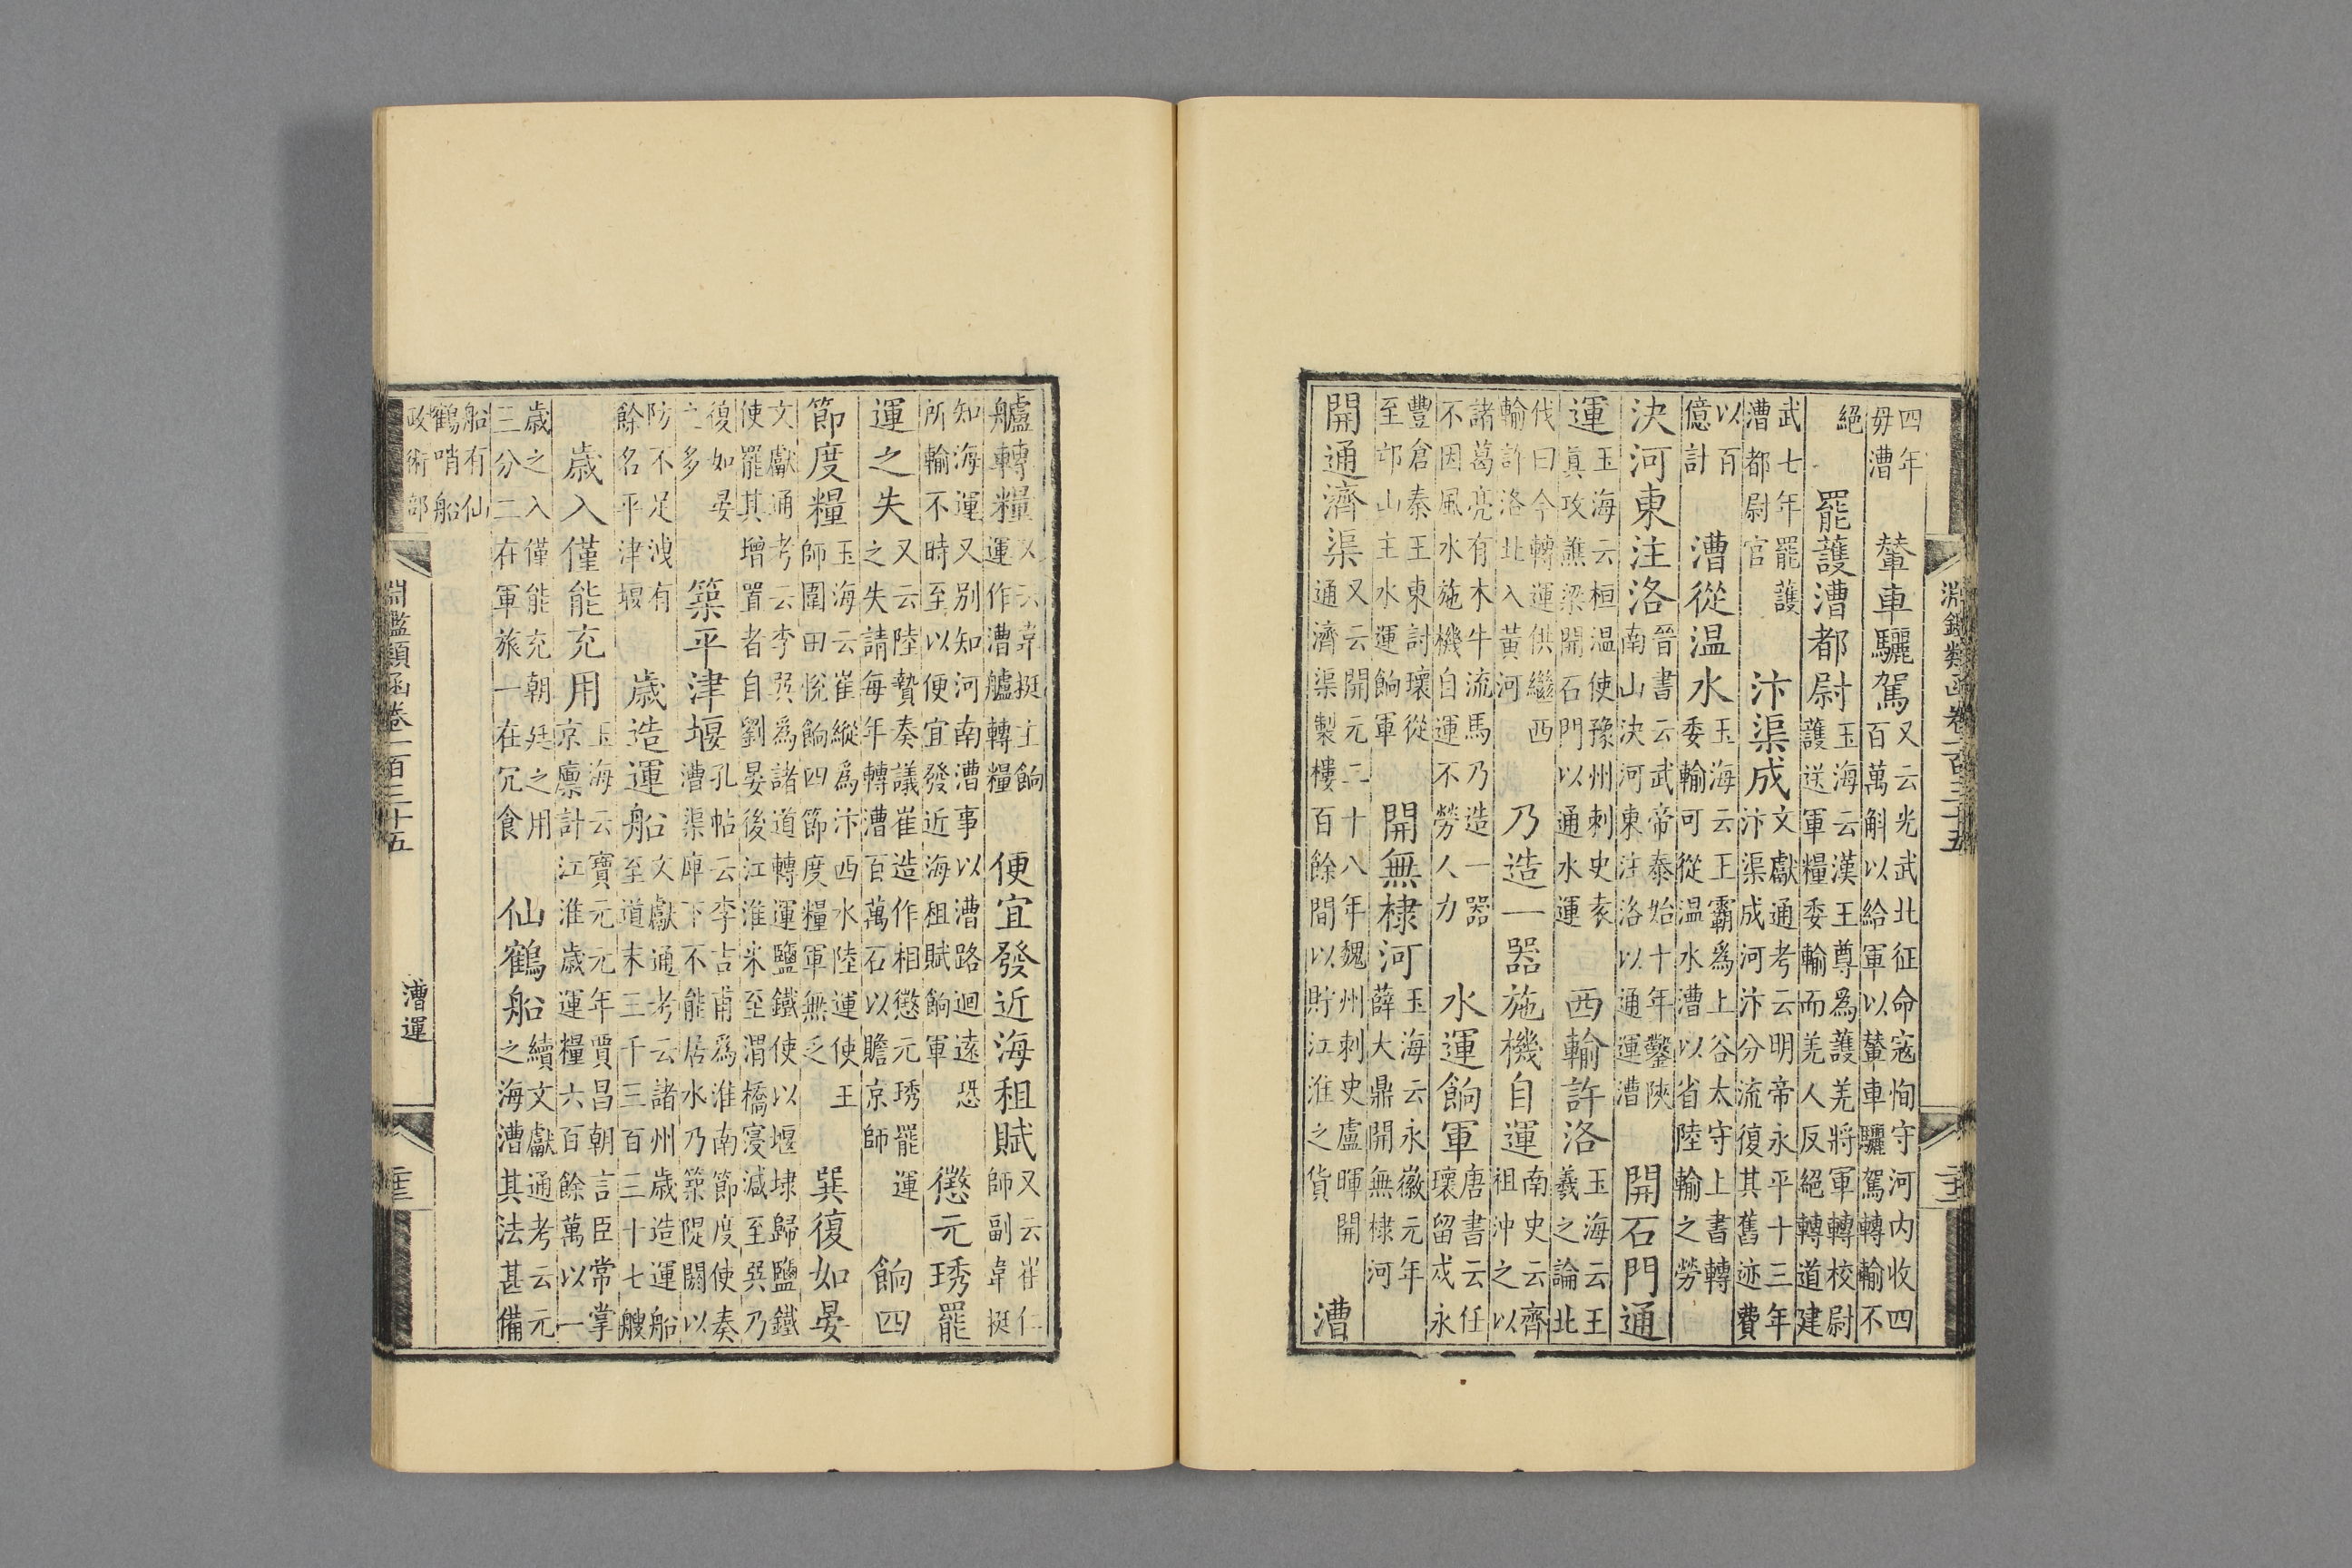 淵鑑類函卷一百三十五
四年
毋漕
輦車驪駕
又云光武北征命寇恂守河内收四
百萬斛以給軍以輦車驪駕轉輸不
絕
罷護漕都尉
玉海云漢王尊為護羌將軍轉校尉
護送軍糧委輸而羌人反絕轉道建
武七年罷護
漕都尉官
汴渠成
文獻通考云明帝永平十三年
汴渠成河汴分流復其舊迹費
以百
億計
漕從温水
玉海云王霸為上谷太守上書轉
委輸可從温水漕以省陸輸之勞
決河東注洛
晉書云武帝泰始十年鑿陝
南山決河東注洛以通運漕
開石門通
運
玉海云桓温使豫州刺史袁
真攻譙梁開石門以通水運
西輸許洛
玉海云王
羲之論北
伐曰今轉運供繼西
輸許洛北入黄河
乃造一器施機自運
南史云齊
祖沖之以
諸葛亮有木牛流馬乃造一器
不因風水施機自運不勞人力
水運餉軍
唐書云任
瓌留戍永
豐倉秦王東討瓌從
至邙山主水運餉軍
開無棣河
玉海云永徽元年
薛大鼎開無棣河
開通濟渠
又云開元二十八年魏州刺史盧暉開
通濟渠製樓百餘間以貯江淮之貨
漕
艫轉糧
又云韋挺主餉
運作漕艫轉糧
便宜發近海租賦
又云崔仁
師副韋挺
知海運又别知河南漕事以漕路迴遠恐
所輸不時至以便宜發近海租賦餉軍
懲元琇罷
運之失
又云陸贄奏議崔造作相懲元琇罷運
之失請每年轉漕百萬石以贍京師
餉四
節度糧
玉海云崔縱為汴西水陸運使王
師圍田悅餉四節度糧軍無乏
巽復如晏
文獻通考云李巽為諸道轉運鹽鐵使以堰埭歸鹽鐵
使罷其增置者自劉晏後江淮米至渭橋寖減至巽乃
復如晏
之多
築平津堰
孔帖云李吉甫為淮南節度使奏
漕渠庳下不能居水乃築隄閼以
防不足洩有
餘名平津堰
歲造運船
文獻通考云諸州歲造運船
至道末三千三百三十七艘
歲入僅能充用
玉海云寶元元年賈昌朝言臣常掌
京廩計江淮歲運糧六百餘萬以一
歲之入僅能充朝廷之用
三分二在軍旅一在冗食
仙鶴船
續文獻通考云元
之海漕其法甚備
船有仙
鶴哨船
政術部
漕運
淵鑑類函卷一百三十五